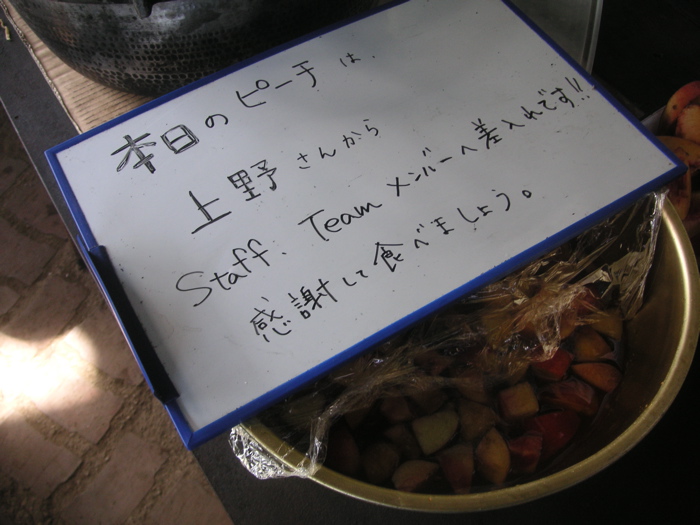 本日のピーチは、
上野さんから
Staff、Teamメンバーへ差入れです!!
感謝して食べましょう。